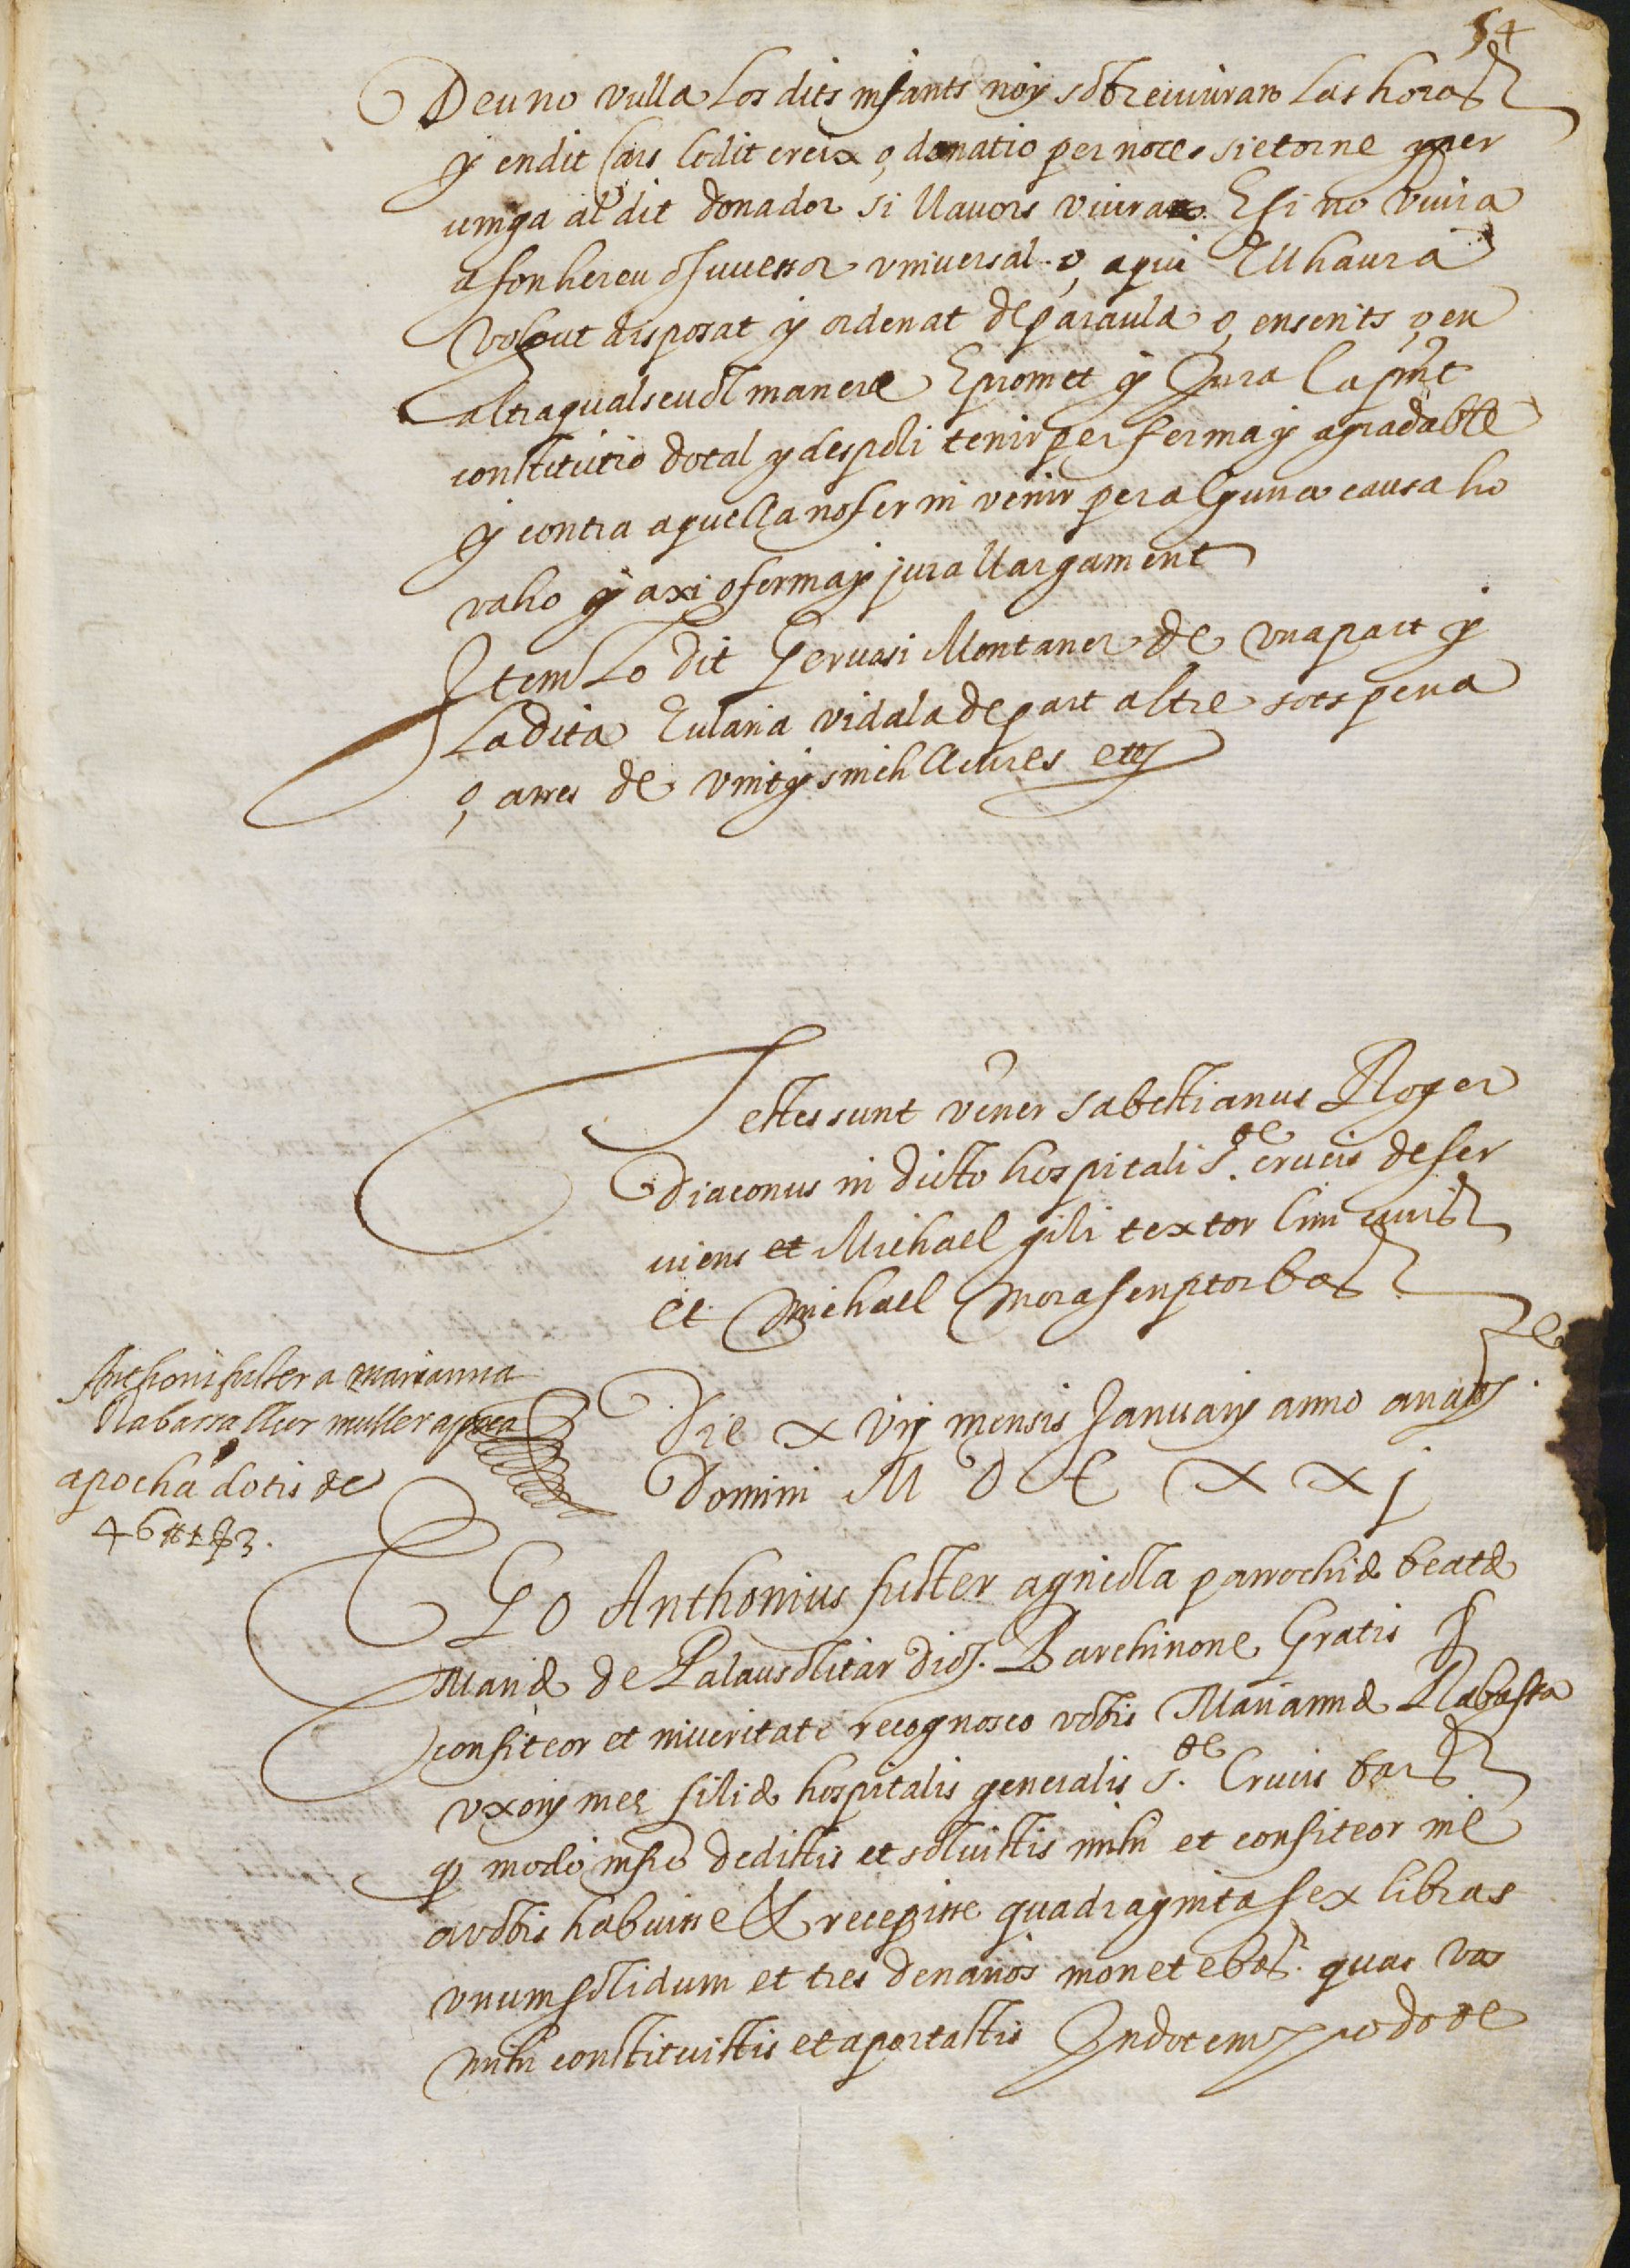 54
Deu no vulla los dits infants noy sobreviuran las horas
y en dit cas lo dit creix o, donatio per noces sie torne y per
vinga al dit donador si llavors viura E si no viura
a son hereu o successor universal o, a qui Ell haura
volgut disposat y ordenat de paraula o, en scrits o, en
altra qualsevol manera E promet y Jura la pnt
constitutio dotal y de spoli tenir per ferma y agradable
y contra aquella no fer ni venir per alguna causa ho
raho y axi o ferma y jura llargament
Item Lo dit Gervasi Montaner de una part y
La dita Eularia vidala de part altre sots pena
o, arres de vint y sinch lliures etc
Testes sunt vener Sabestianus Roger
Diaconus in dicto hospitali S.te crucis deser
viens et Michael gili textor lini civis
et Michael Mora scriptor bar
Anthoni fuster a marianna
Rabassa sur muller
apocha dotis de
46 ₶ 1 ß 3.
Die x vij mensis Januarij anno a nat
Domini M D C x x j
EGO Anthonius fuster agricola parrochiæ beatæ
Mariæ de Palausolitar dios. Barchinone Gratis
confiteor et in veritate recognosco vobis Mariannæ Rabassa
uxorj meæ filiæ hospitalis generalis S.te Crucis bar
q modo infro dedistis et solvistis mihi et confiteor me
a vobis habuisse & recepisse quadraginta sex libras
unum solidum et tres denarios monete bar. quas vos
mihi constituistis et aportastis In dotem et pro dote